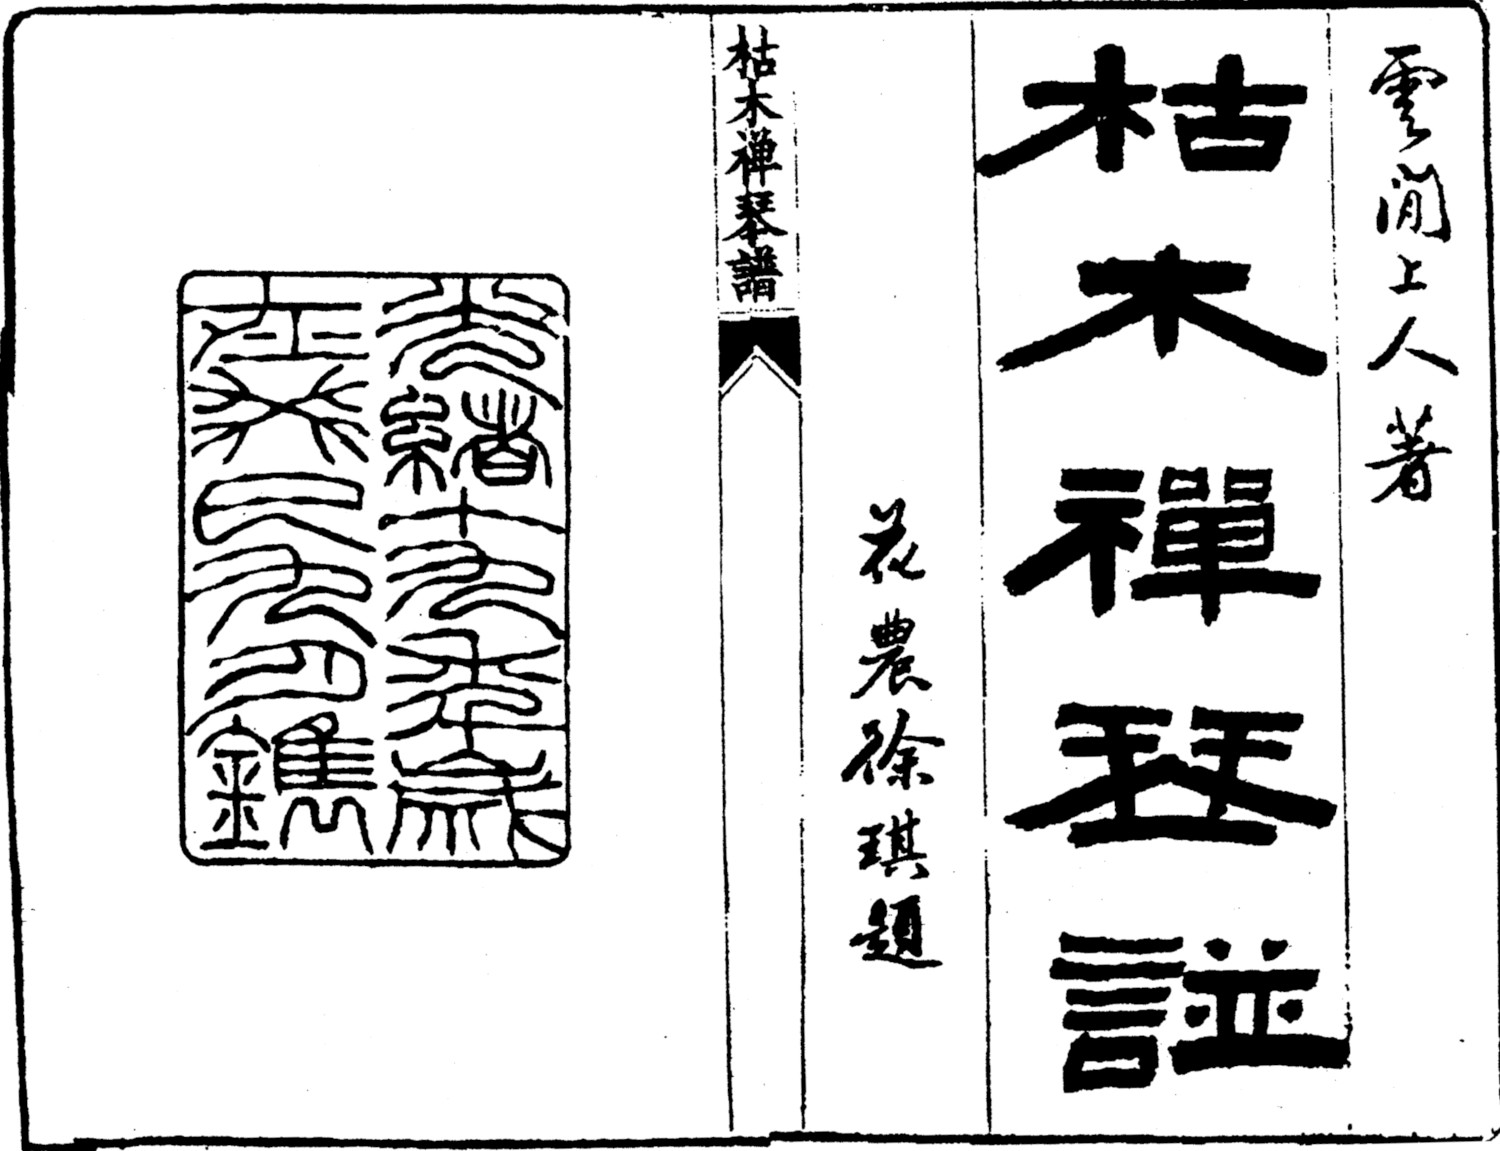 雲閒上人著
枯木禪琴譜
花農徐琪題
枯木禪琴譜
光緒十九年歲
在癸巳九月鐫